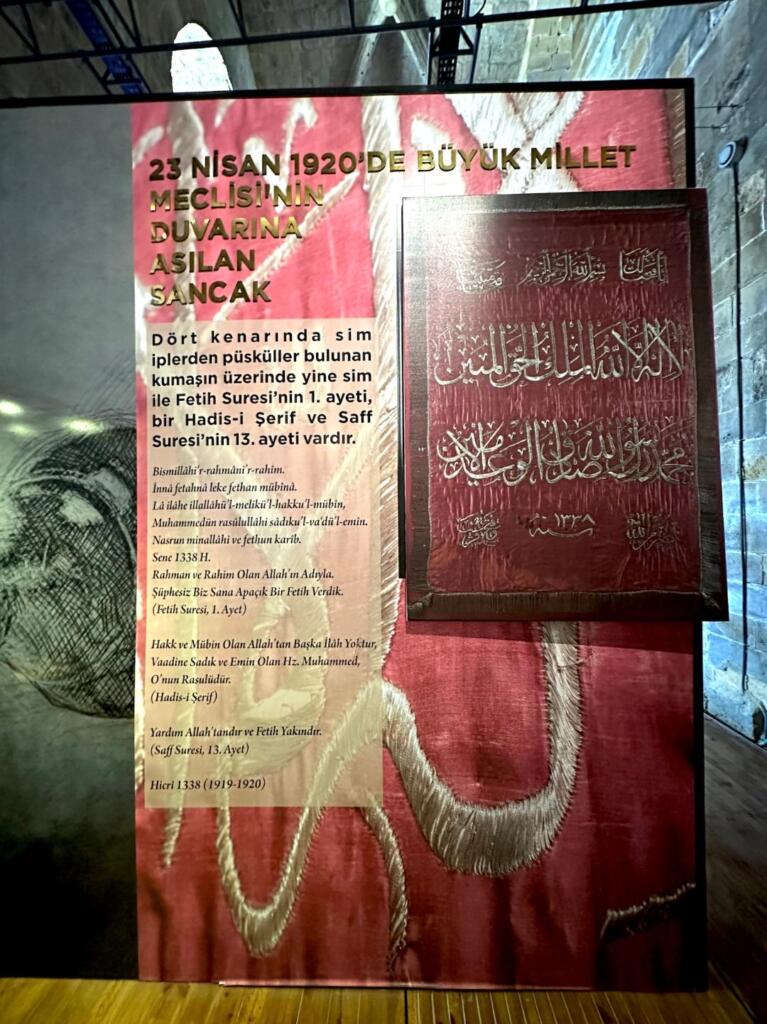 23 NİSAN 1920'DE BÜYÜK MİLLET
MECLİSİ'NİN
DUVARINA
ASILAN
SANCAK
Dört kenarında sim
iplerden püsküller bulunan
kumaşın üzerinde yine sim
ile Fetih Suresi'nin 1. ayeti,
bir Hadis-i Şerif ve Saff
Suresi'nin 13. ayeti vardır.
Bismillâhi'r-rahmâni'r-rahim.
İnnâ fetahnâ leke fethan mübînâ.
Lâ ilâhe illallâhü'l-melikü'l-hakku'l-mübin,
Muhammedün rasûlullâhi sâdıku'l-va'dü'l-emin.
Nasrun minallâhi ve fethun karib.
Sene 1338 H.
Rahman ve Rahim Olan Allah'ın Adıyla.
Şüphesiz Biz Sana Apaçık Bir Fetih Verdik.
(Fetih Suresi, 1. Ayet)
Hakk ve Mübin Olan Allah'tan Başka İlâh Yoktur,
Vaadine Sadık ve Emin Olan Hz. Muhammed,
O'nun Rasulüdür.
(Hadis-i Şerif)
Yardım Allah'tandır ve Fetih Yakındır.
(Saff Suresi, 13. Ayet)
Hicri 1338 (1919-1920)
بسم الله الرحمن الرحيم
لا اله الا الله الملك الحق المبين
محمد رسول الله صادق الوعد الامين
سنه ١٣٣٨